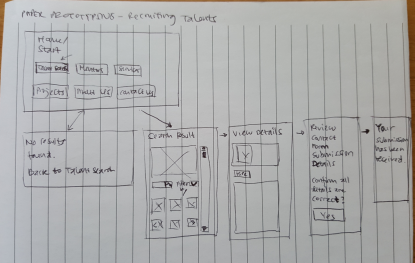 PAPER PROTOTYPING - Recruiting Talents
Home/
Start
Talent Search
Mentors
Projects
About Us
Contact Us
No results
found.
Back to Talent Search
Search Result
View Details
Review
correct
Form
Submission
Details
Confirm all
details are
correct?
Yes
Your
submission
has been
received